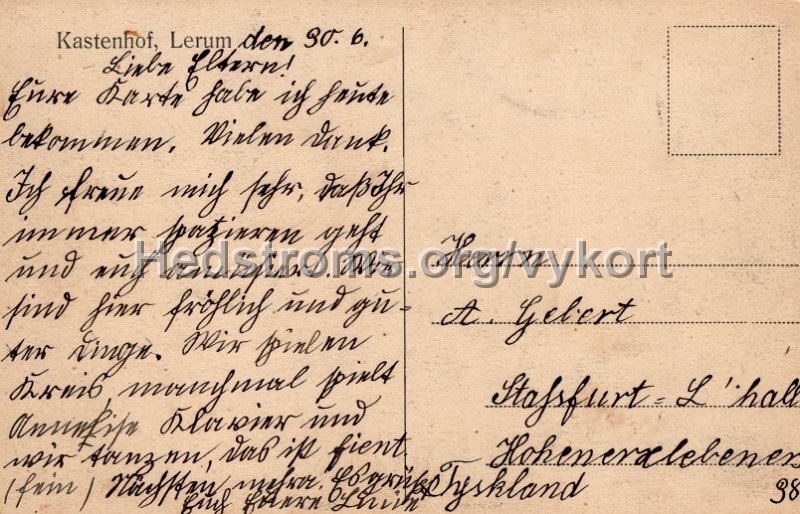 Kastenhof, Lerum den 30. 6.
Liebe Eltern!
Eure Karte habe ich heute
bekommen. Vielen Dank.
Ich freue mich sehr, daß Ihr
immer spazieren geht
und euch amüsiert. Wir
sind hier fröhlich und gu-
ter Dinge. Wir spielen
Kreis, manchmal spielt
Annelise Klavier und
wir tanzen, das ist fient
(fein) Nächsten mehr. Es grüßt
Euch Eure
Hedstroms.org/vykort
Herrn
A. Gebert
Stassfurt = L'hall
Hohenerxlebener
Tyskland
38